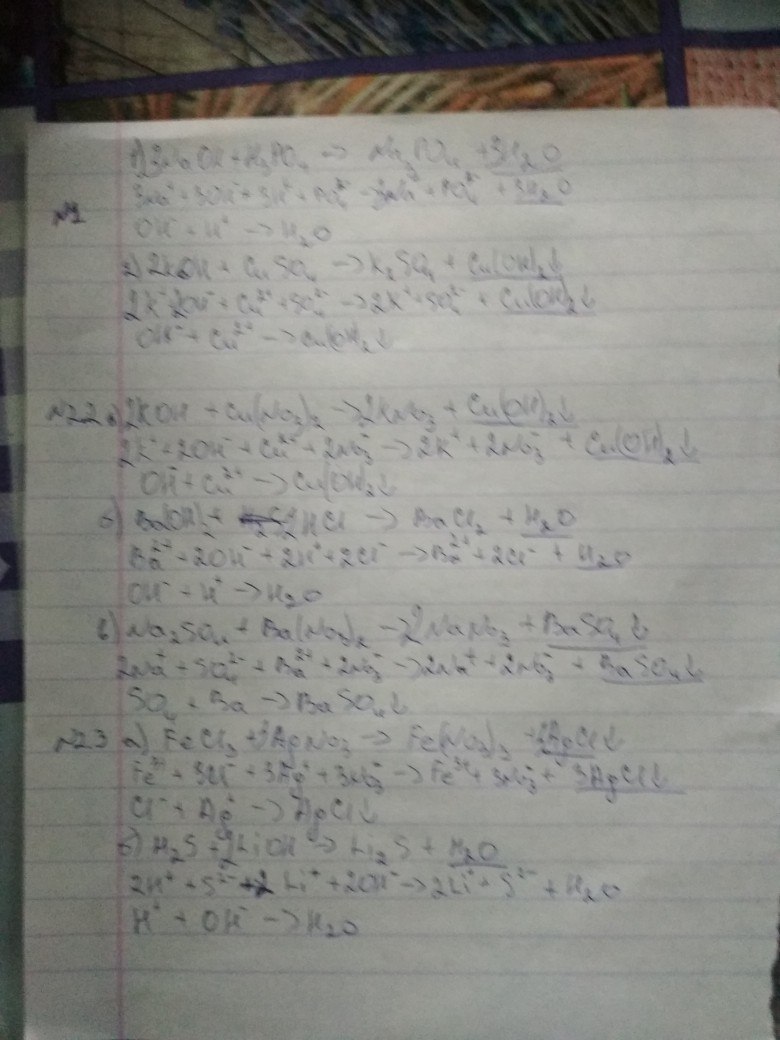 №1
1) 3NaOH + H₃PO₄ → Na₃PO₄ + 3H₂O
3Na⁺ + 3OH⁻ + 3H⁺ + PO₄³⁻ → 3Na⁺ + PO₄³⁻ + 3H₂O
OH⁻ + H⁺ → H₂O
2) 2KOH + CuSO₄ → K₂SO₄ + Cu(OH)₂↓
2K⁺ 2OH⁻ + Cu²⁺ + SO₄²⁻ → 2K⁺ + SO₄²⁻ + Cu(OH)₂↓
OH⁻ + Cu²⁺ → Cu(OH)₂↓
№22 а) 2KOH + Cu(NO₃)₂ → 2KNO₃ + Cu(OH)₂↓
2K⁺ + 2OH⁻ + Cu²⁺ + 2NO₃⁻ → 2K⁺ + 2NO₃⁻ + Cu(OH)₂↓
OH⁻ + Cu²⁺ → Cu(OH)₂↓
б) Ba(OH)₂ + 2HCl → BaCl₂ + H₂O
Ba²⁺ + 2OH⁻ + 2H⁺ + 2Cl⁻ → Ba²⁺ + 2Cl⁻ + H₂O
OH⁻ + H⁺ → H₂O
в) Na₂SO₄ + Ba(NO₃)₂ → 2NaNO₃ + BaSO₄↓
2Na⁺ + SO₄²⁻ + Ba²⁺ + 2NO₃⁻ → 2Na⁺ + 2NO₃⁻ + BaSO₄↓
SO₄ + Ba → BaSO₄↓
№23 а) FeCl₃ + 3AgNO₃ → Fe(NO₃)₃ + 3AgCl↓
Fe³⁺ + 3Cl⁻ + 3Ag⁺ + 3NO₃⁻ → Fe³⁺ + 3NO₃⁻ + 3AgCl↓
Cl⁻ + Ag⁺ → AgCl↓
б) H₂S + 2LiOH → Li₂S + H₂O
2H⁺ + S²⁻ + 2Li⁺ + 2OH⁻ → 2Li⁺ + S²⁻ + H₂O
H⁺ + OH⁻ → H₂O